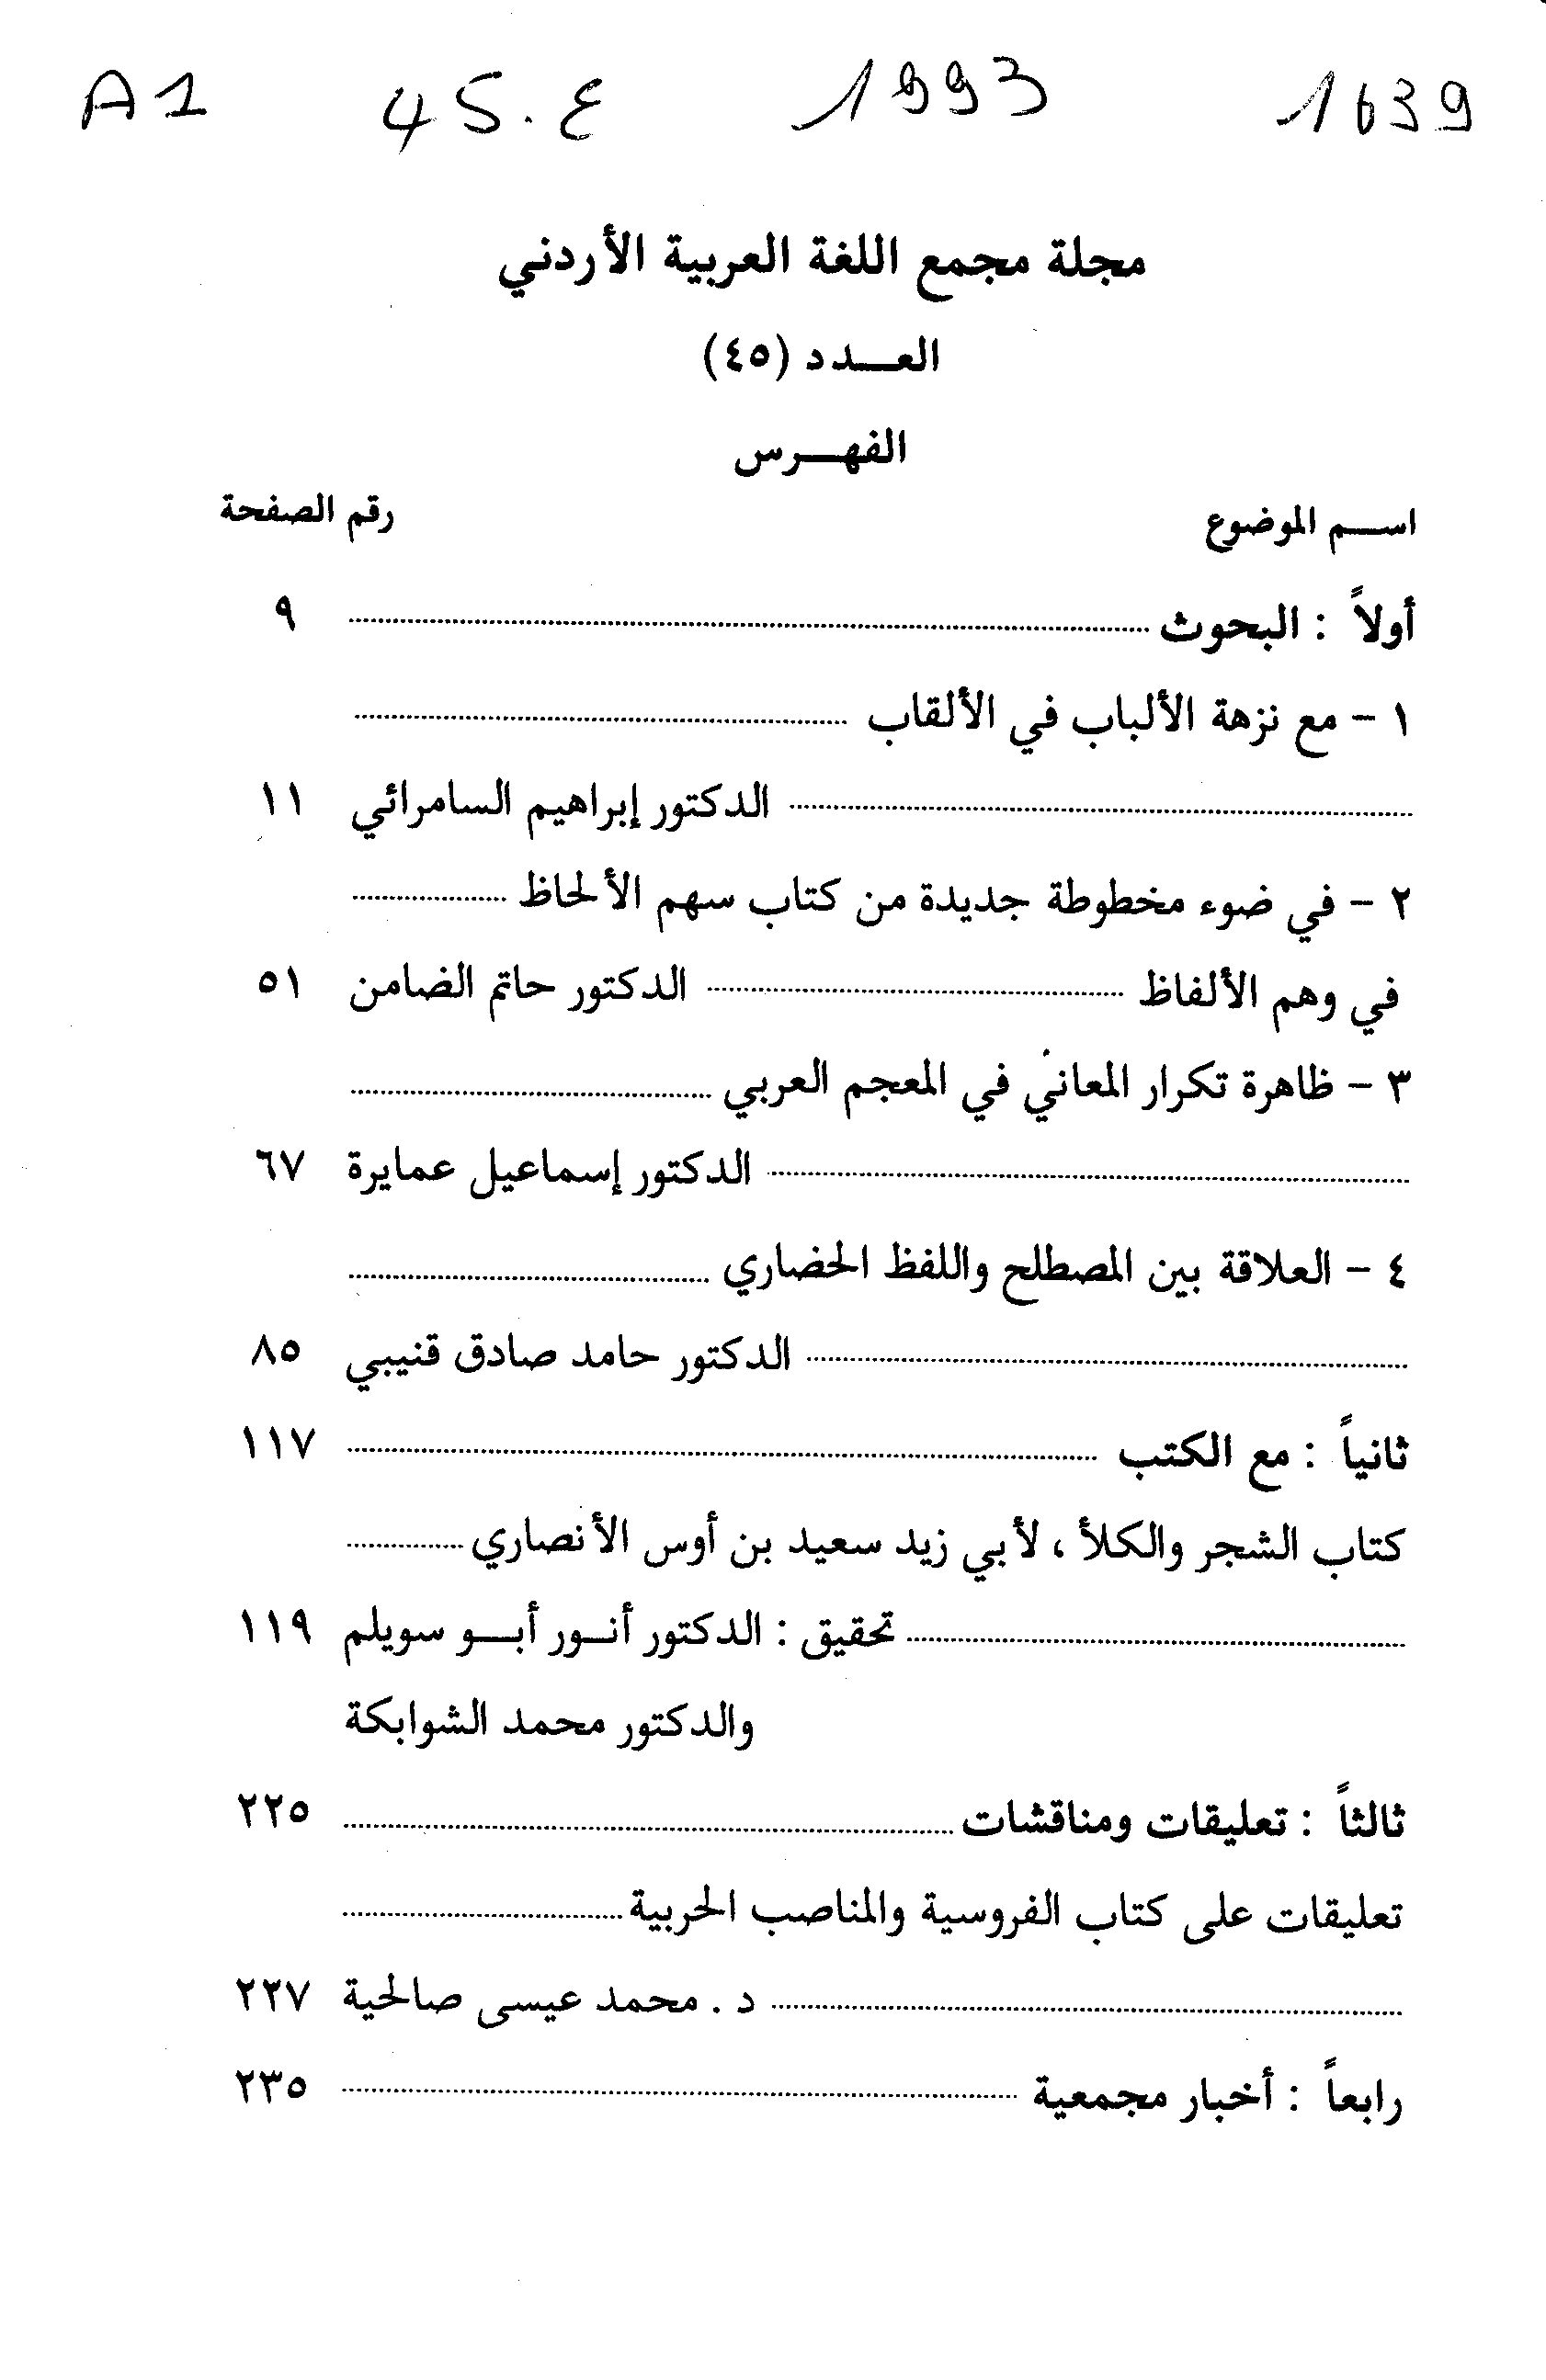 A1 45.ع 1993 1639
مجلة مجمع اللغة العربية الأردني
العـــدد (٤٥)
الفهـــرس
اســم الموضوع رقم الصفحة
أولاً : البحوث ٩
١ - مع نزهة الألباب في الألقاب
الدكتور إبراهيم السامرائي ١١
٢ - في ضوء مخطوطة جديدة من كتاب سهم الألحاظ
في وهم الألفاظ الدكتور حاتم الضامن ٥١
٣ - ظاهرة تكرار المعاني في المعجم العربي
الدكتور إسماعيل عمايرة ٦٧
٤ - العلاقة بين المصطلح واللفظ الحضاري
الدكتور حامد صادق قنيبي ٨٥
ثانياً : مع الكتب ١١٧
كتاب الشجر والكلأ ، لأبي زيد سعيد بن أوس الأنصاري
تحقيق : الدكتور أنــور أبــو سويلم ١١٩
والدكتور محمد الشوابكة
ثالثاً : تعليقات ومناقشات ٢٢٥
تعليقات على كتاب الفروسية والمناصب الحربية
د . محمد عيسى صالحية ٢٢٧
رابعاً : أخبار مجمعية ٢٣٥